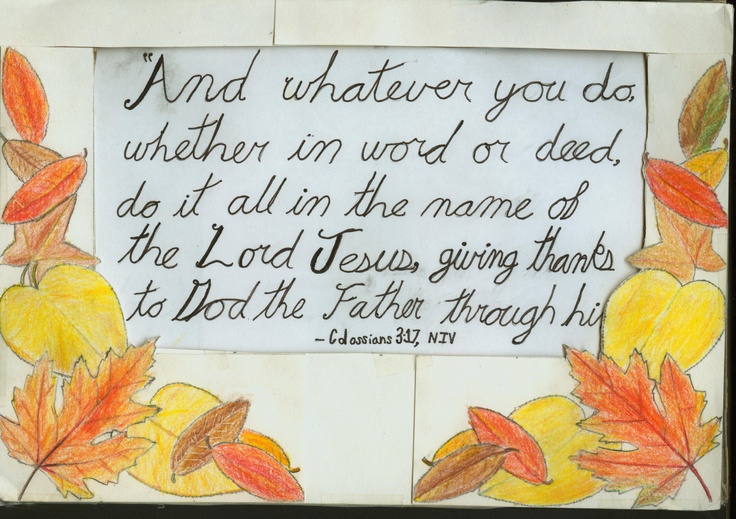 "And whatever you do,
whether in word or deed,
do it all in the name of
the Lord Jesus, giving thanks
to God the Father through hi
- Colossians 3:17, NIV